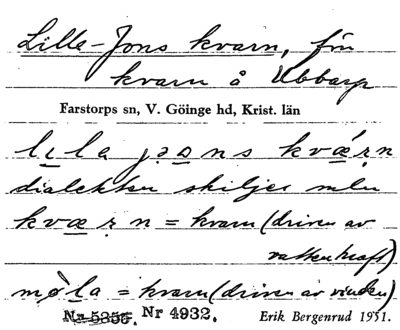 Lille-Jons kvarn, fin
kvarn å Ubbarp
Farstorps sn, V. Göinge hd, Krist. län
lila jons kværn
dialekten skiljer mln
kværn = kvarn (driven av
vattenkraft)
møla = kvarn (driven av vinden)
Nr 5355. Nr 4932. Erik Bergenrud 1951.